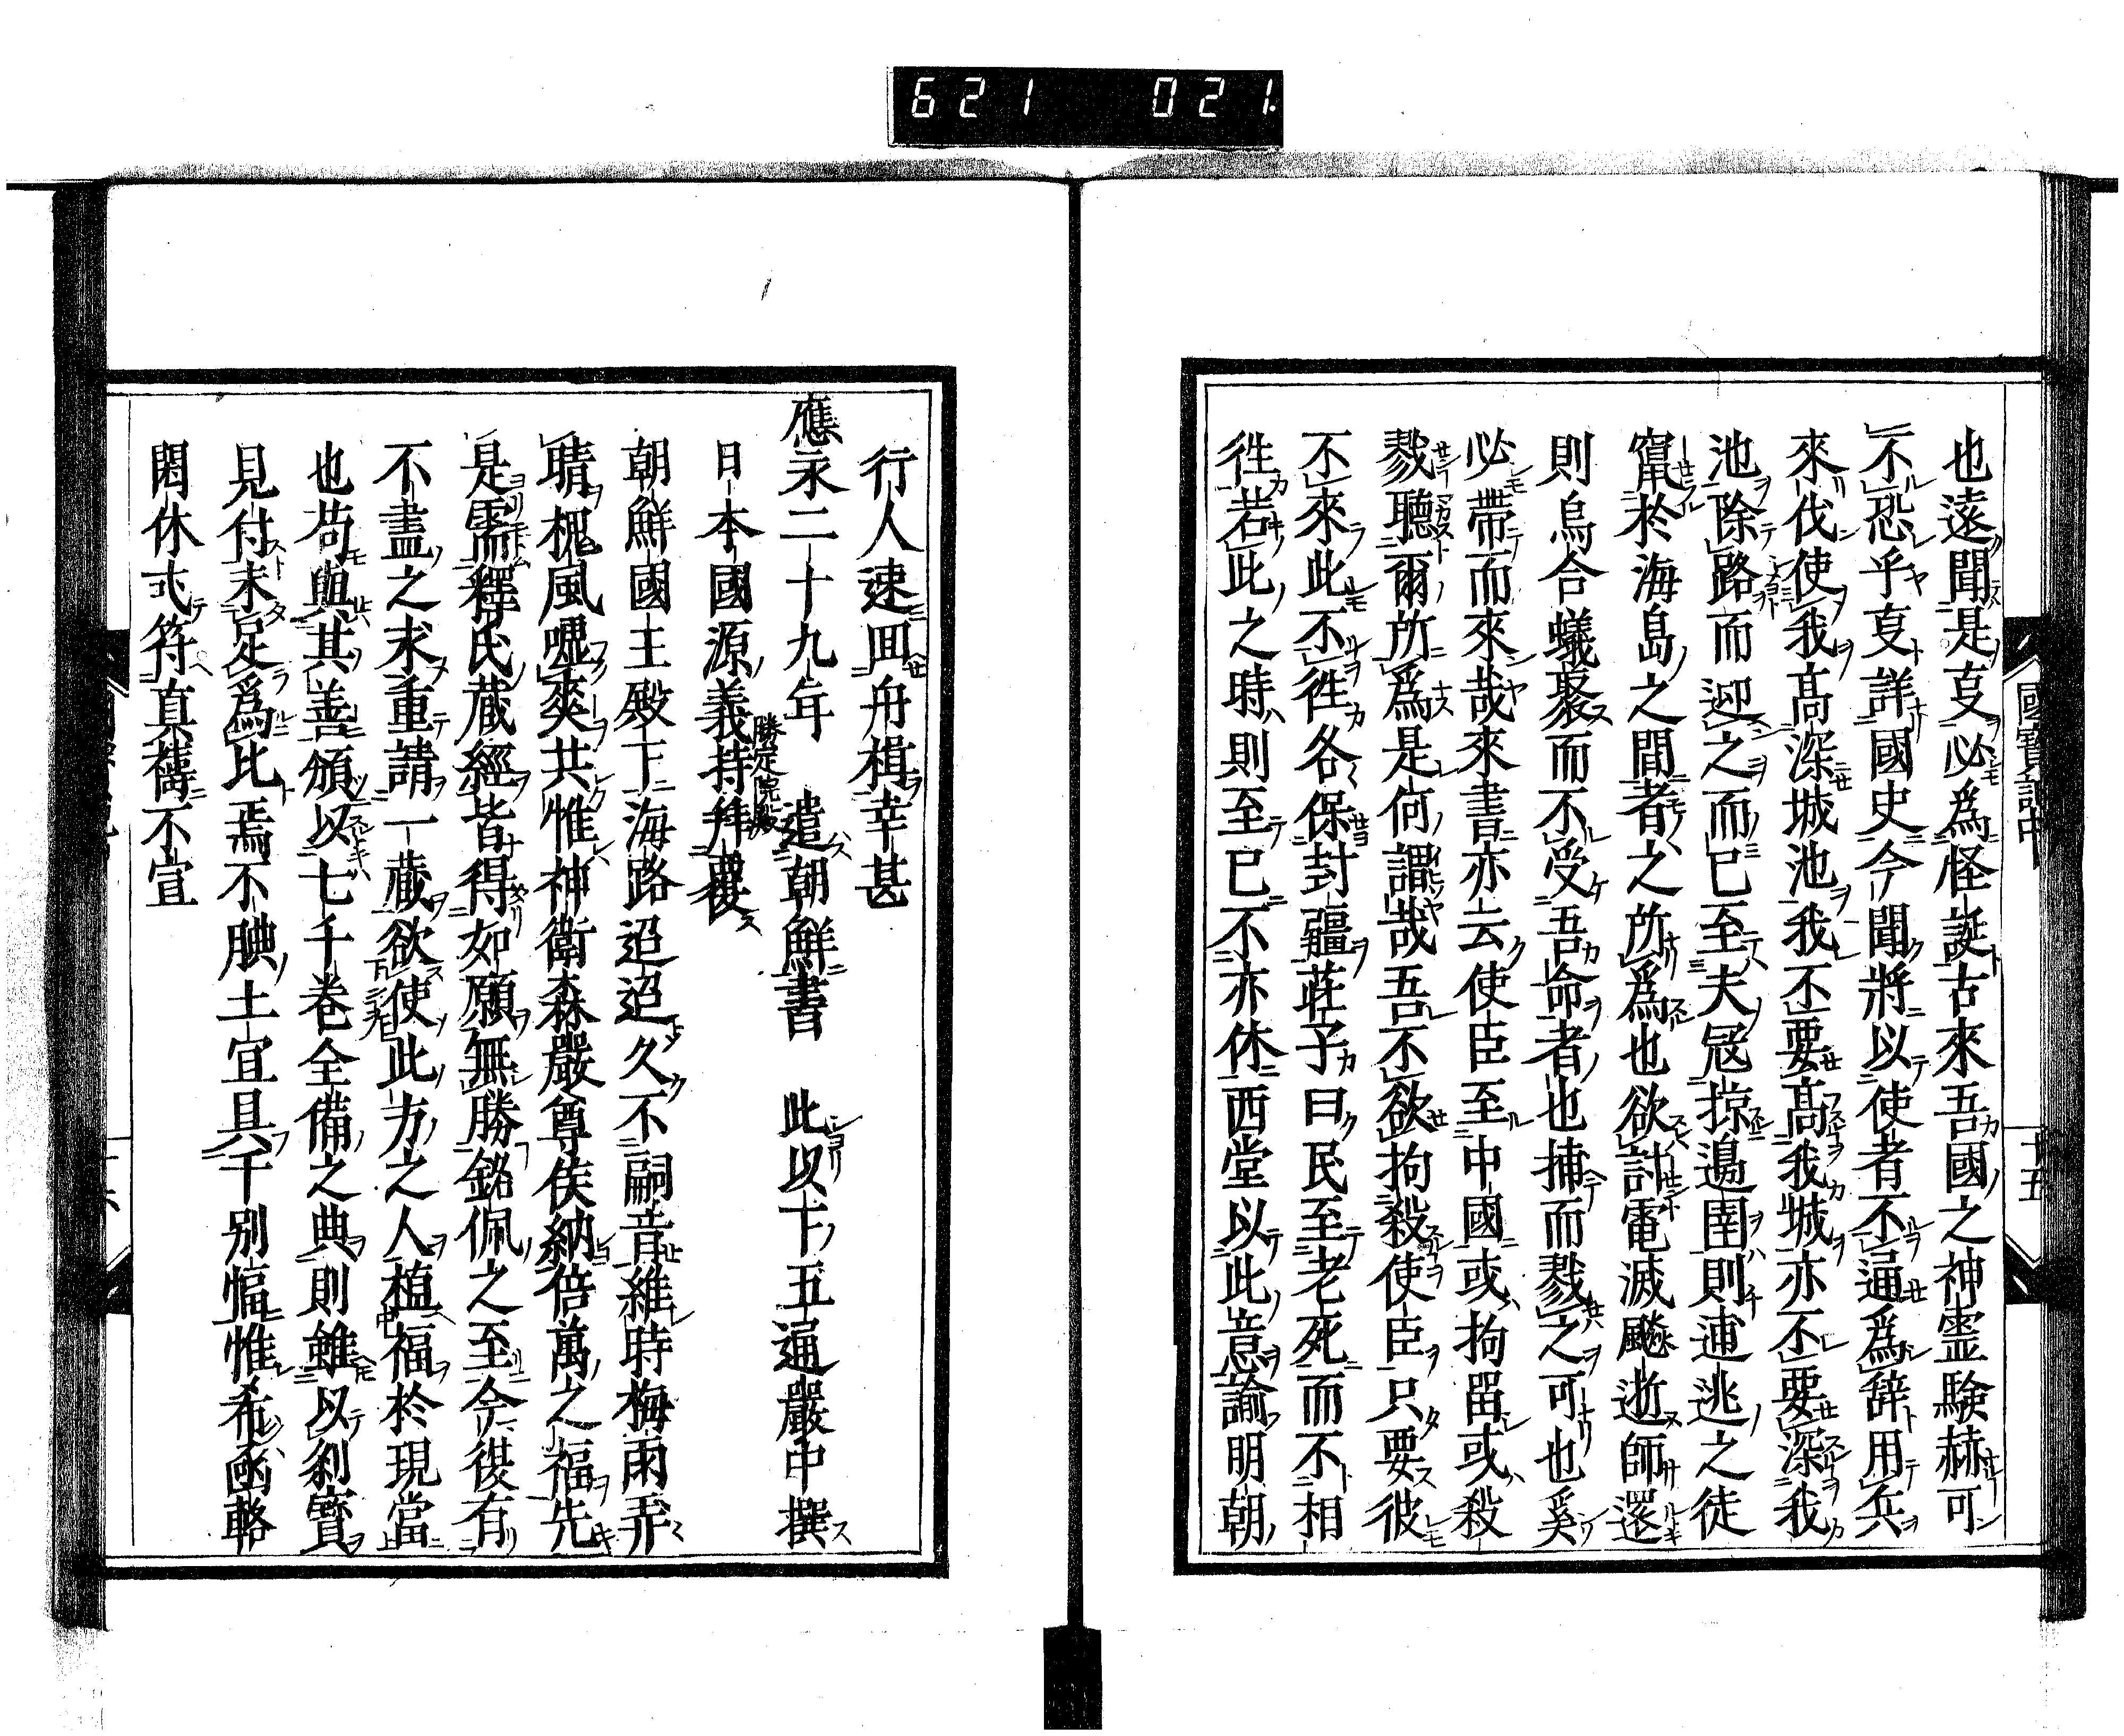 621 021
國寶記中
十五
也遠聞是㕝必爲怪誕古來吾國之神霊験赫可
不恐乎㕝詳國史今聞將以使者不逼爲辞用兵
來伐使我髙深城池我不要髙我城亦不要深我
池除路而迎之而已至夫冦掠邉圉則逋逃之徒
竄於海島之間者之所爲也欲討電滅颷逝師還
則烏合蟻聚而不受吾命者也捕而戮之可也奚
必帶而來哉來書亦云使臣至中國或拘畄或殺
戮聽爾所爲是何謂哉吾不欲拘殺使臣只要彼
不來此不徃各保封疆莊子曰民至老死而不相
徃若此之時則至已不亦休西堂以此意諭明朝
行人速囬舟楫幸甚
應永二十九年 遣朝鮮書 此以下五通嚴中撰
日本國源義持拜覆
勝定院殿
朝鮮國王殿下海路迢迢久不嗣音維時梅雨弄
晴槐風嘘爽共惟神衛森嚴尊侯納倍萬之福先
是需釋氏藏經皆得如願無勝銘佩之至今復有
不盡之求重請一藏欲使此方之人植福於現當
也苟與其善頒以七千巻全備之典則雖以刹寳
見付未足爲比焉不腆土宜具于别幅惟希函輅
閎休弍符真禱不宣